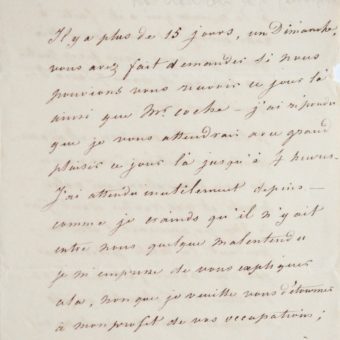 Il y a plus de 15 jours, un Dimanche,
vous avez fait demander si nous
pouvions vous recevoir ce jour là
ainsi que Mr. Coche – j'ai répondu
que je vous attendrais avec grand
plaisir ce jour là jusqu'à 4 heures.
J'ai attendu inutilement depuis –
comme je crainds qu'il n'y ait
entre nous quelque malentendu
je m'empresse de vous expliquer
cela, non que je veuille vous détourner
à mon profit de vos occupations;